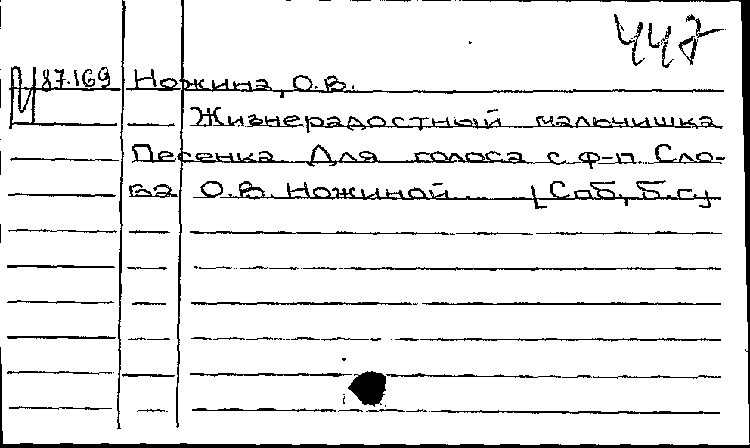 447
П 87.169 Ножина, О.В.
Жизнерадостный мальчишка
Песенка Для голоса с ф-п. Сло-
ва О.В. Ножиной [Спб, б.г.]